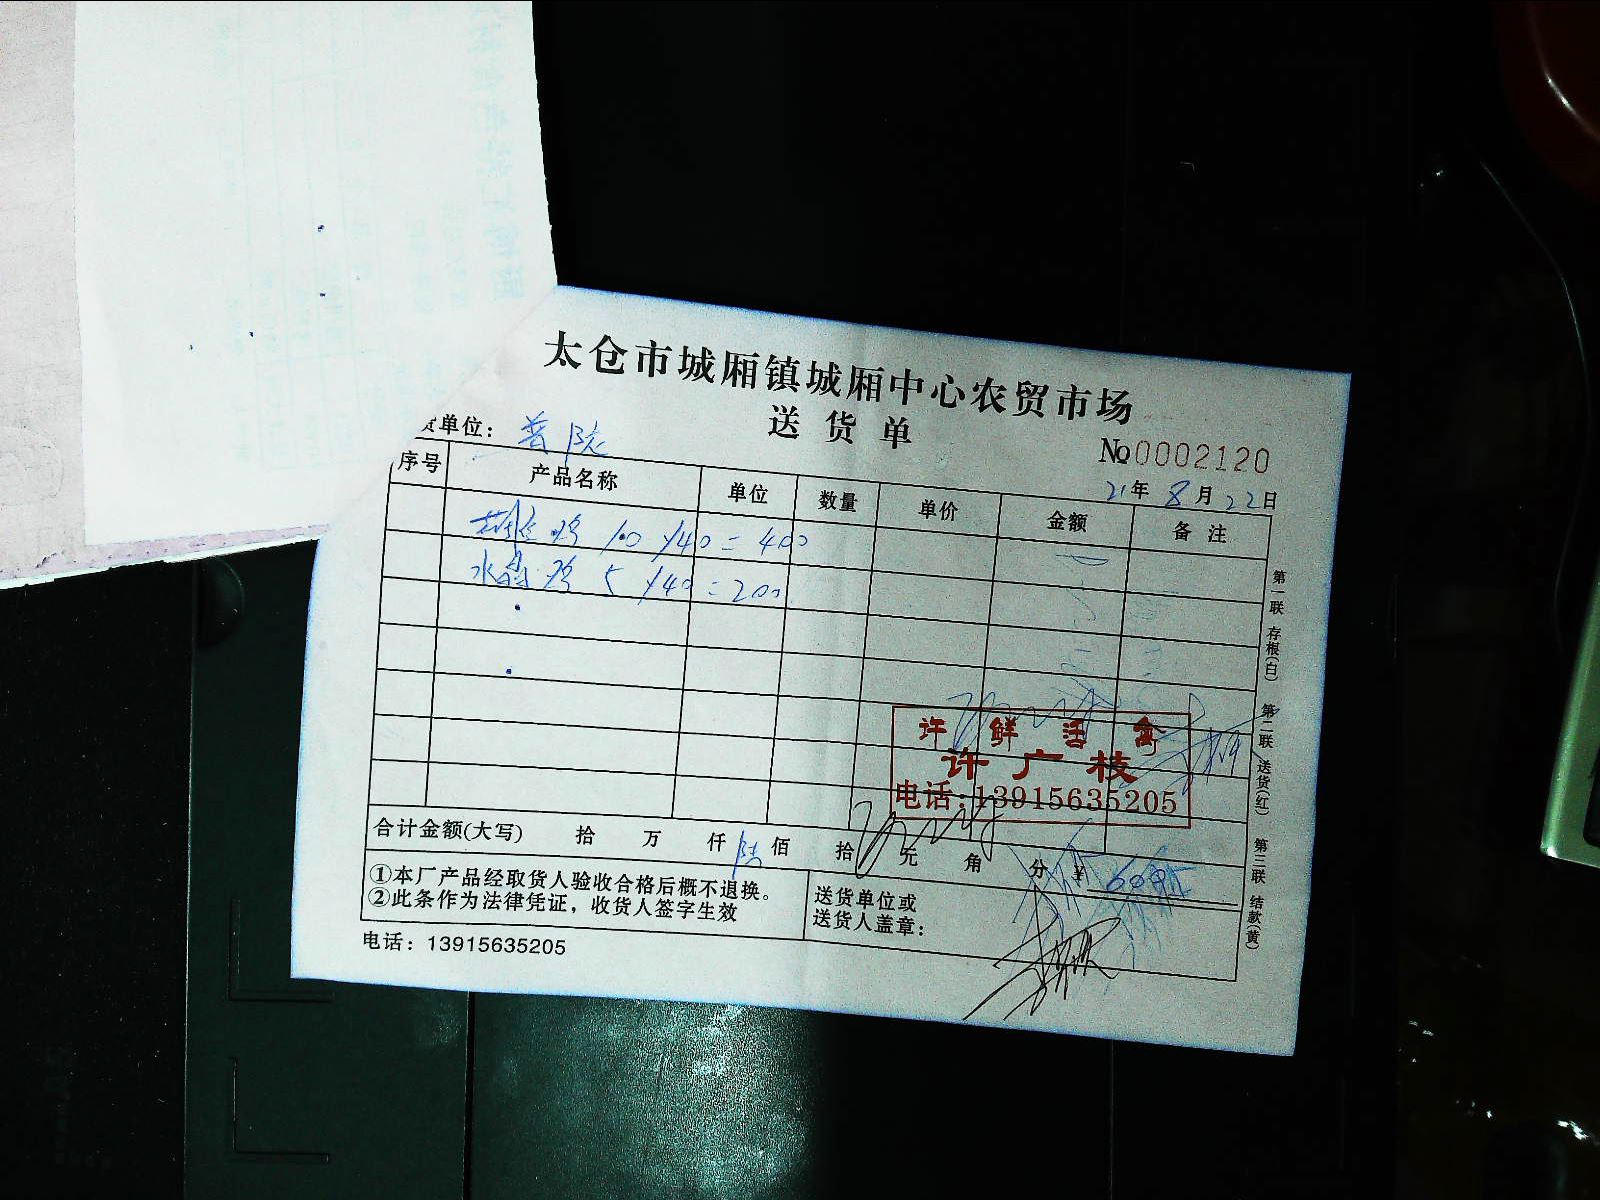 太仓市城厢镇城厢中心农贸市场
送货单
货单位: 普院
No 0002120
21年 8月 22日
序号 产品名称 单位 数量 单价 金额 备注
草鸡 10 X40 = 400
水晶鸡 5 X40 = 200
许鲜活禽
许广枝
电话:13915635205
合计金额(大写) 拾 万 仟 陆佰 拾 元 角 分 ¥ 600元
①本厂产品经取货人验收合格后概不退换。
②此条作为法律凭证，收货人签字生效
送货单位或
送货人盖章:
电话: 13915635205
第一联 存根(白) 第二联 送货(红) 第三联 结款(黄)